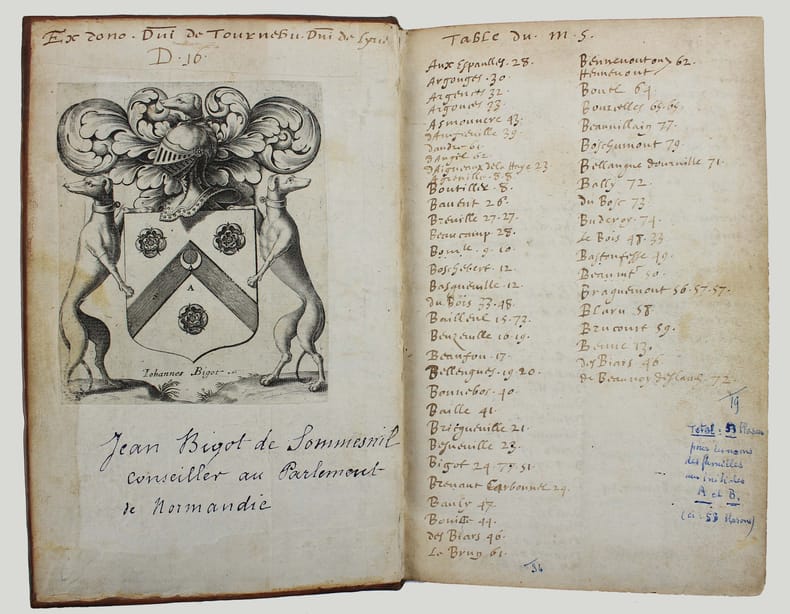 Ex dono. Dni de Tournebu. Dni de Lyue
D. 16
A
Iohannes Bigot
Jean Bigot de Sommesnil
conseiller au Parlement
de Normandie
Table du m. s.
Aux Espaulles. 28.
Argouges. 30
Argences 32
Argouges 93
Asmouuere 43
d'Augueuille 39
dandre 61
d'Angil 62
d'Aigneaux de la Haye 23
8.8
Boutiller. 8.
Bauent 26.
Breuille 27.27.
Beaucamp 28.
9.10
Boschebert. 12.
Basqueuille. 12.
du Bois 33.48.
Bailleul 15.73.
Beuzeuille 16.19.
Beaufou. 17.
Bellengues. 19.20.
Bonnebos. 40.
Baille 41.
Bricqueuille 21.
Besueuille 23.
Bigot 24.77.51.
Breuant Carbonnel 29.
Bauly 47.
Bouille 44.
des Biars 46.
Le Brun 61.
34
Bennenouton 62.
Hennenont
Boutl 64.
Bouzelles 65.65.
Beauuillain 77.
Boschumont 79.
Bellangue douruille 71.
Bally 72.
du Bosc 73
Buderoy. 74.
Le Bois 48.33
Bastonfesse 49.
Beaumt 50.
Braquemont 56.57.57.
Blaru 58
Brucourt 59.
13.
des Biars 46
de Beaunoy 72.
19
Total: 53 Blasons
pour les noms
des familles
aux initiales
A et B.
(ci: 53 Blasons)